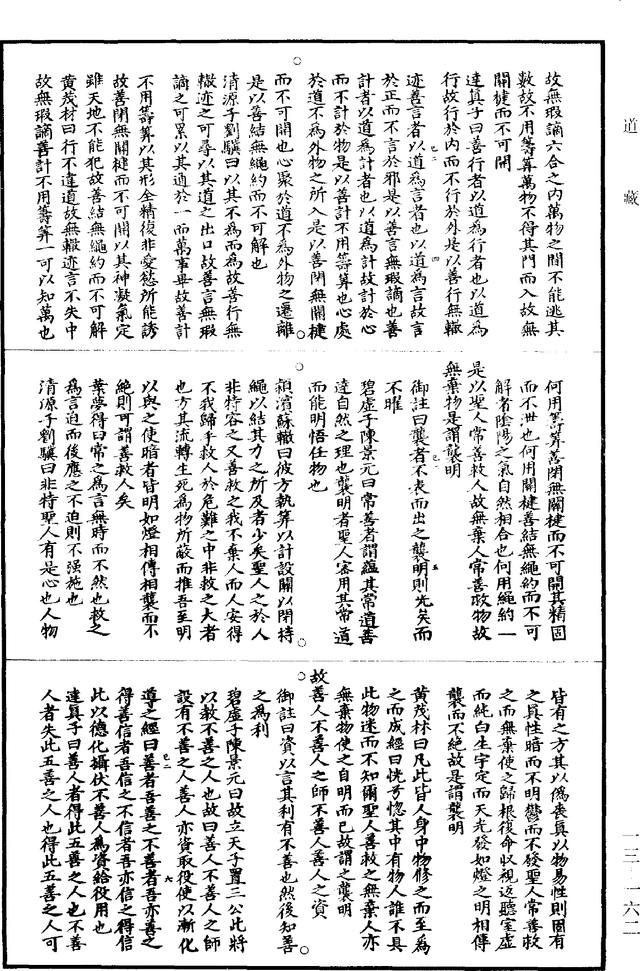 道藏
故無瑕謫六合之内萬物之閒不能逃其
數故不用籌筭萬物不得其門而入故無
關楗而不可開
達真子曰善行者以道為行者也以道為
行故行於内而不行於外是以善行無轍
迹善言者以道為言者也以道為言故言
於正而不言於邪是以善言無瑕謫也善
計者以道為計者也以道為計故計於心
而不計於物是以善計不用籌筭也心處
於道不為外物之所入是以善閉無關楗
而不可開也心聚於道不為外物之遷離
是以善結無繩約而不可解也
清源子劉驥曰以其不為而為故善行無
轍迹之可尋以其道之出口故善言無瑕
謫之可累以其通於一而萬事畢故善計
不用籌筭以其形全精復非愛慾所能誘
故善閉無關楗而不可開以其神凝氣定
雖天地不能犯故善結無繩約而不可解
黄茂材曰行不違道故無轍迹言不失中
故無瑕謫善計不用籌筭一可以知萬也
何用籌筭善閉無關楗而不可開其精固
而不泄也何用關楗善結無繩約而不可
解者陰陽之氣自然相合也何用繩約一
是以聖人常善救人故無棄人常善救物故
無棄物是謂襲明
御註曰襲者不表而出之襲明則光矣而
不曜
碧虚子陳景元曰常善者謂蘊其常道善
達自然之理也襲明者聖人密用其常道
而能明悟任物也
潁濱蘇轍曰彼方執筭以計設關以閉持
繩以結其力之所及者少矣聖人之於人
非特容之又善救之我不棄人而人安得
不我歸乎救人於危難之中非救之大者
也方其流轉生死為物所蔽而推吾至明
以與之使暗者皆明如燈相傳相襲而不
絶則可謂善救人矣
葉夢得曰常之為言無時而不然也救之
為言迫而後應之不迫則不强施也
清源子劉驥曰非特聖人有是心也人物
皆有之方其以偽喪真以物易性則固有
之真性暗而不明鬱而不發聖人常善救
之而無棄使之歸根復命収視返聽室虚
而純白生宇定而天光發如燈之明相傳
襲而不絶故是謂襲明
黄茂材曰凡此皆人身中物修之而至為
之而成經曰恍兮惚其中有物人誰不具
此物迷而不知爾聖人善救之無棄人亦
無棄物使之自明而已故謂之襲明
故善人不善人之師不善人善人之資
御註曰資以言其利有不善也然後知善
之為利
碧虚子陳景元曰故立天子置三公此將
以教不善之人也故曰善人不善人之師
設有不善之人善人亦資取役使以漸化
導之經曰善者吾善之不善者吾亦善之
得善信者吾信之不信者吾亦信之得信
此以德化攝伏不善人為資給役用也
達真子曰善人者得此五善之人也不善
人者失此五善之人也得此五善之人可
一三—一六二